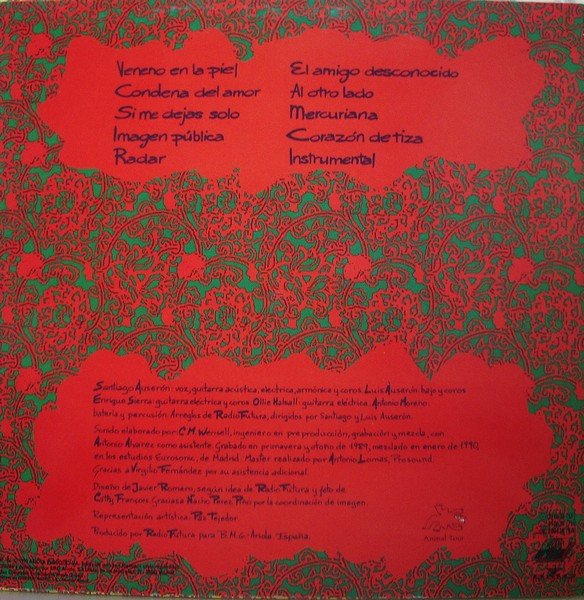 Veneno en la piel
Condena del amor
Si me dejas solo
Imagen pública
Radar
El amigo desconocido
Al otro lado
Mercuriana
Corazón de tiza
Instrumental
Santiago Auserón: voz, guitarra acústica, electrica, armónica y coros. Luis Auserón: bajo y coros
Enrique Sierra: guitarra eléctrica y coros. Ollie Halsall: guitarra eléctrica. Antonio Moreno:
batería y percusión. Arreglos de Radio Futura, dirigidos por Santiago y Luis Auserón.
Sonido elaborado por: C.M. Wensell, ingeniero en pre producción, grabación y mezcla, con
Antonio Alvarez como asistente. Grabado en primavera y otoño de 1989, mezclado en enero de 1990,
en los estudios Eurosonic, de Madrid. Master realizado por Antonio Lomas, Prosound.
Gracias a Virgilio Fernández por su asistencia adicional.
Diseño de Javier Romero, según idea de Radio Futura y foto de
Cathy François. Gracias a Nacho Perez Pino por la coordinación de imagen.
Representación artística: Paz Tejedor
Producido por Radio Futura para B.M.G.-Ariola. España.
Animal Tour